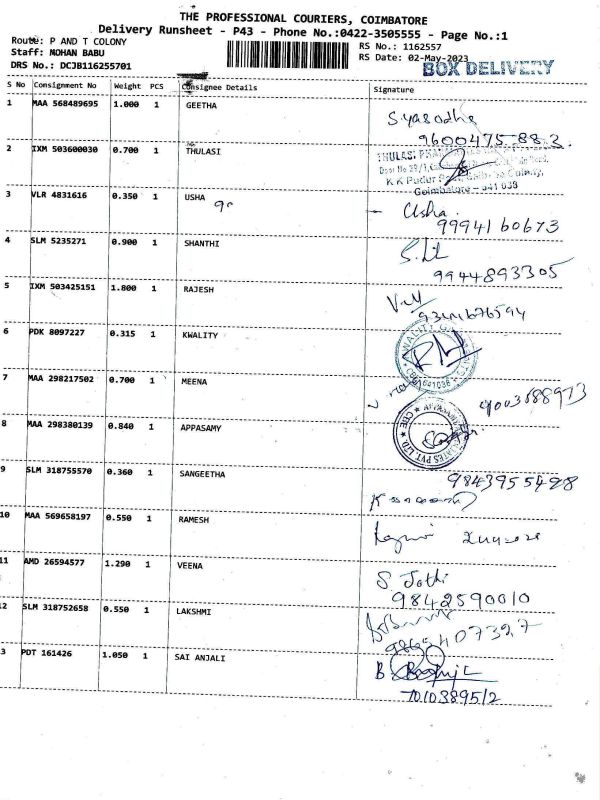 THE PROFESSIONAL COURIERS, COIMBATORE
Delivery Runsheet - P43 - Phone No.:0422-3505555 - Page No.:1
Route: P AND T COLONY
RS No.: 1162557
Staff: MOHAN BABU
RS Date: 02-May-2023
DRS No.: DCJB116255701
BOX DELIVERY
S No Consignment No Weight PCS Consignee Details Signature
1 MAA 568489695 1.000 1 GEETHA
9600475883
2 IXM 503600030 0.700 1 THULASI
Coimbatore - 641 038
3 VLR 4831616 0.350 1 USHA Usha
9994160673
4 SLM 5235271 0.900 1 SHANTHI
9944893305
5 IXM 503425151 1.800 1 RAJESH
6 PDK 8097227 0.315 1 KWALITY
641038
7 MAA 298217502 0.700 1 MEENA
8 MAA 298380139 0.840 1 APPASAMY
9 SLM 318755570 0.360 1 SANGEETHA
10 MAA 569658197 0.550 1 RAMESH
11 AMD 26594577 1.290 1 VEENA
S Jothi
9842590010
12 SLM 318752658 0.550 1 LAKSHMI
13 PDT 161426 1.050 1 SAI ANJALI